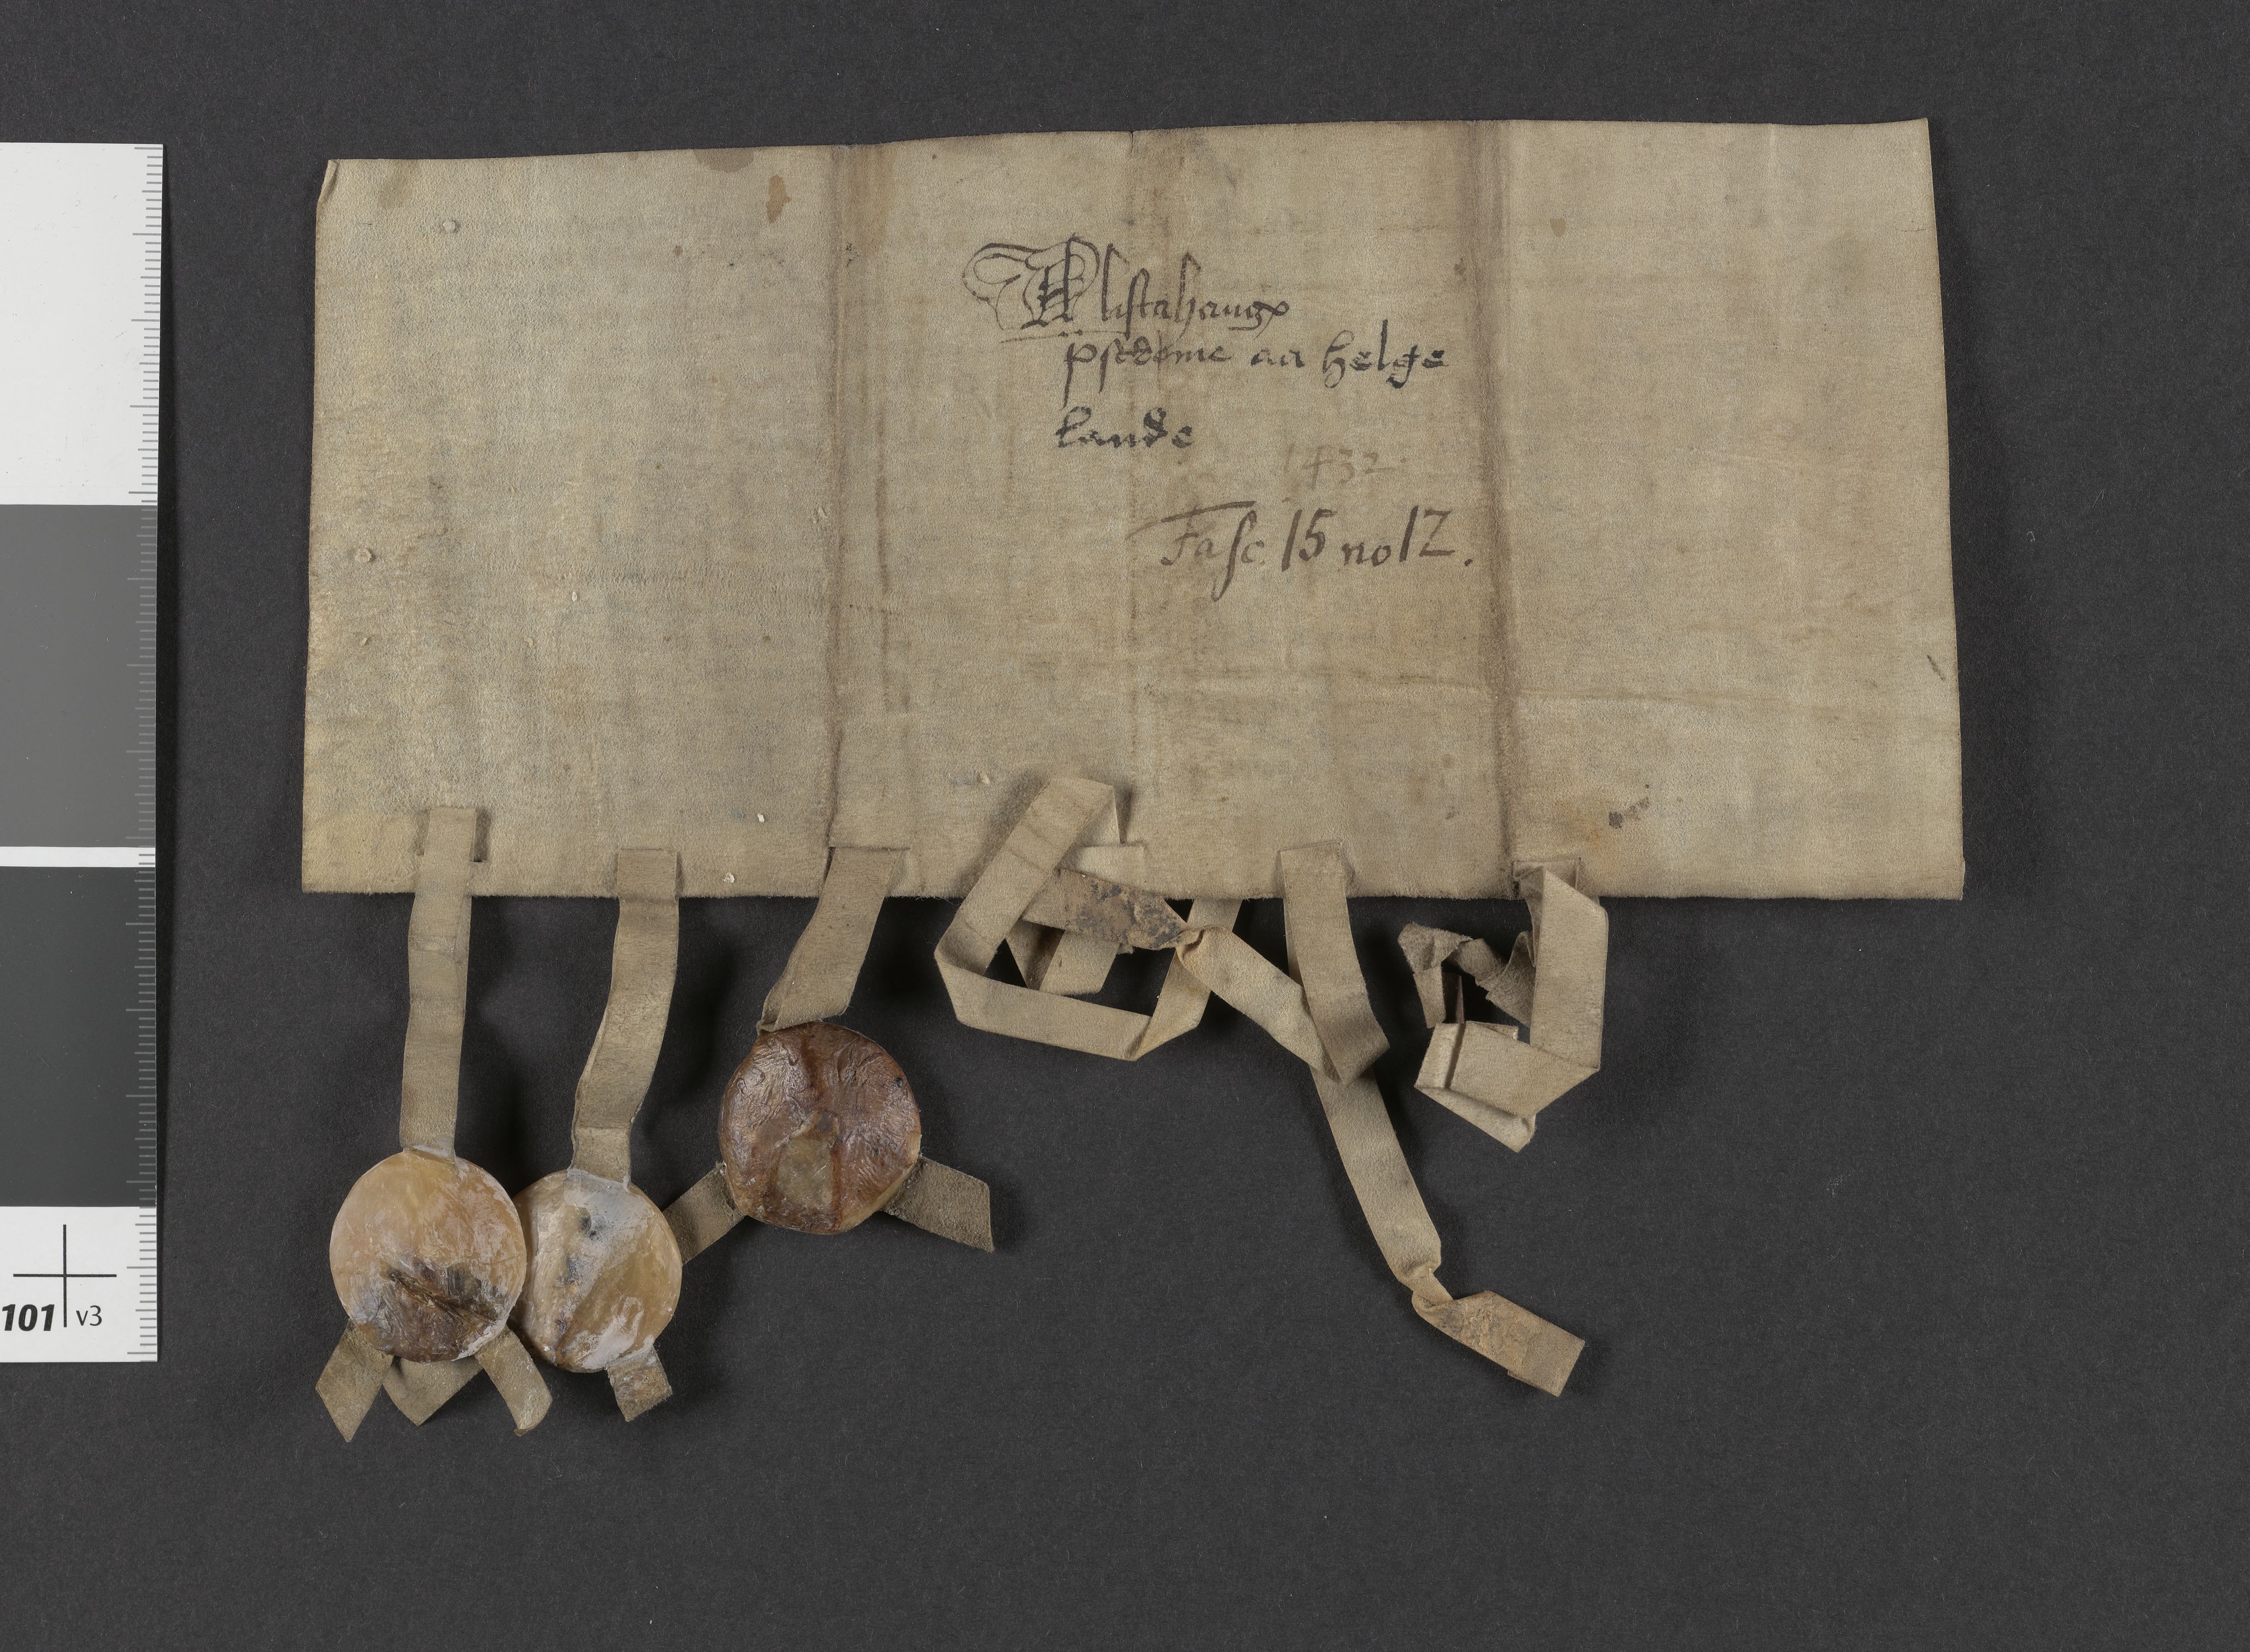 Alistahaugx
pstdome aa helge
lande
1432
Fasc 15 no 12.
101 v3